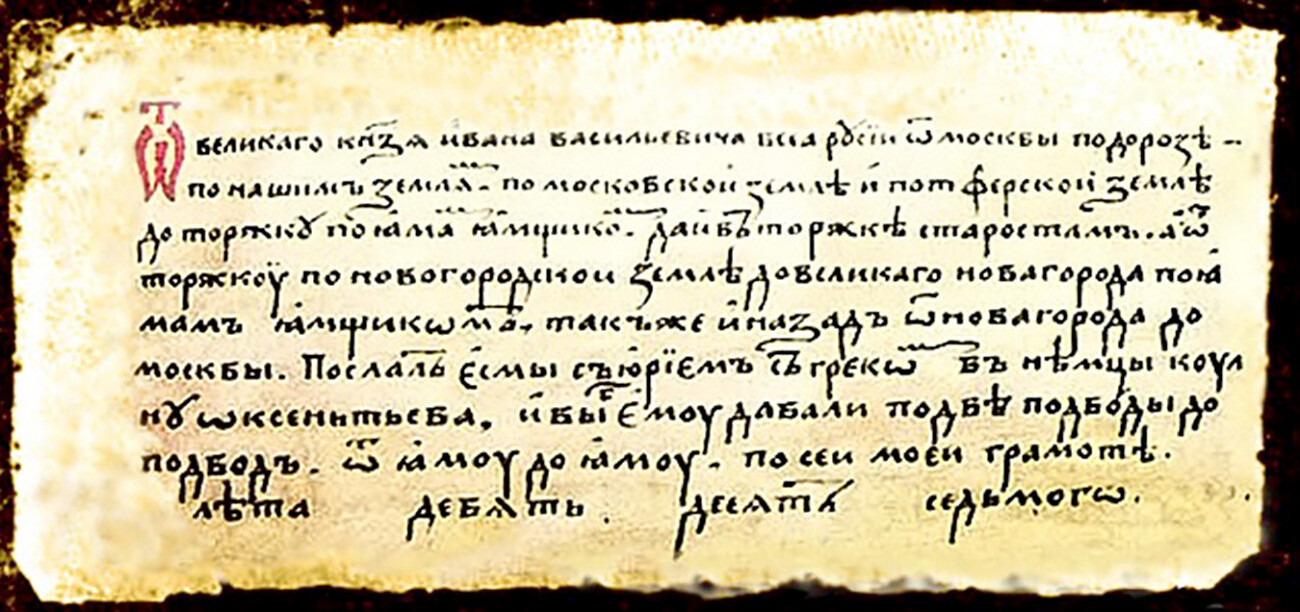 Ѿ великаго кн҃зя и҆вана васильевича всеа рꙋсїи ѿ москвы по дорозѣ –
по нашимъ землѧ. по московской землѣ и҆ по тферской землѣ
до торжкꙋ по ꙗ҆ма ꙗ҆мщико. дай въ торжкѣ старостамъ. а҆ ѿ
торжкоу по новогородской землѣ до великаго новагорода по ꙗ҆
мамъ ꙗ҆мщикѡмъ. такъже и҆ назадъ ѿ новагорода до
москвы. Послалъ є҆смы съ ю҆рїемъ съ грекѡ въ нѣмцы коул
нꙋ ѡксеньтьева. и҆ вы є҆моу давали по двѣ подводы до
подводъ. ѿ ꙗ҆моу до ꙗ҆моу. по сеи моеи грамотѣ.
лѣта девѧть. десѧтъ седьмогѡ.